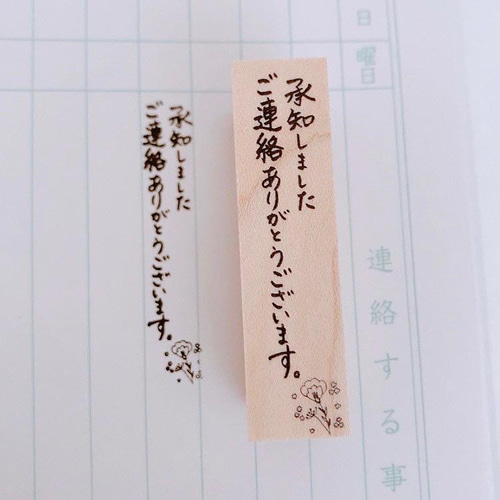 日
曜日
連絡する事
承知しました
ご連絡ありがとうございます。
承知しました
ご連絡ありがとうございます。